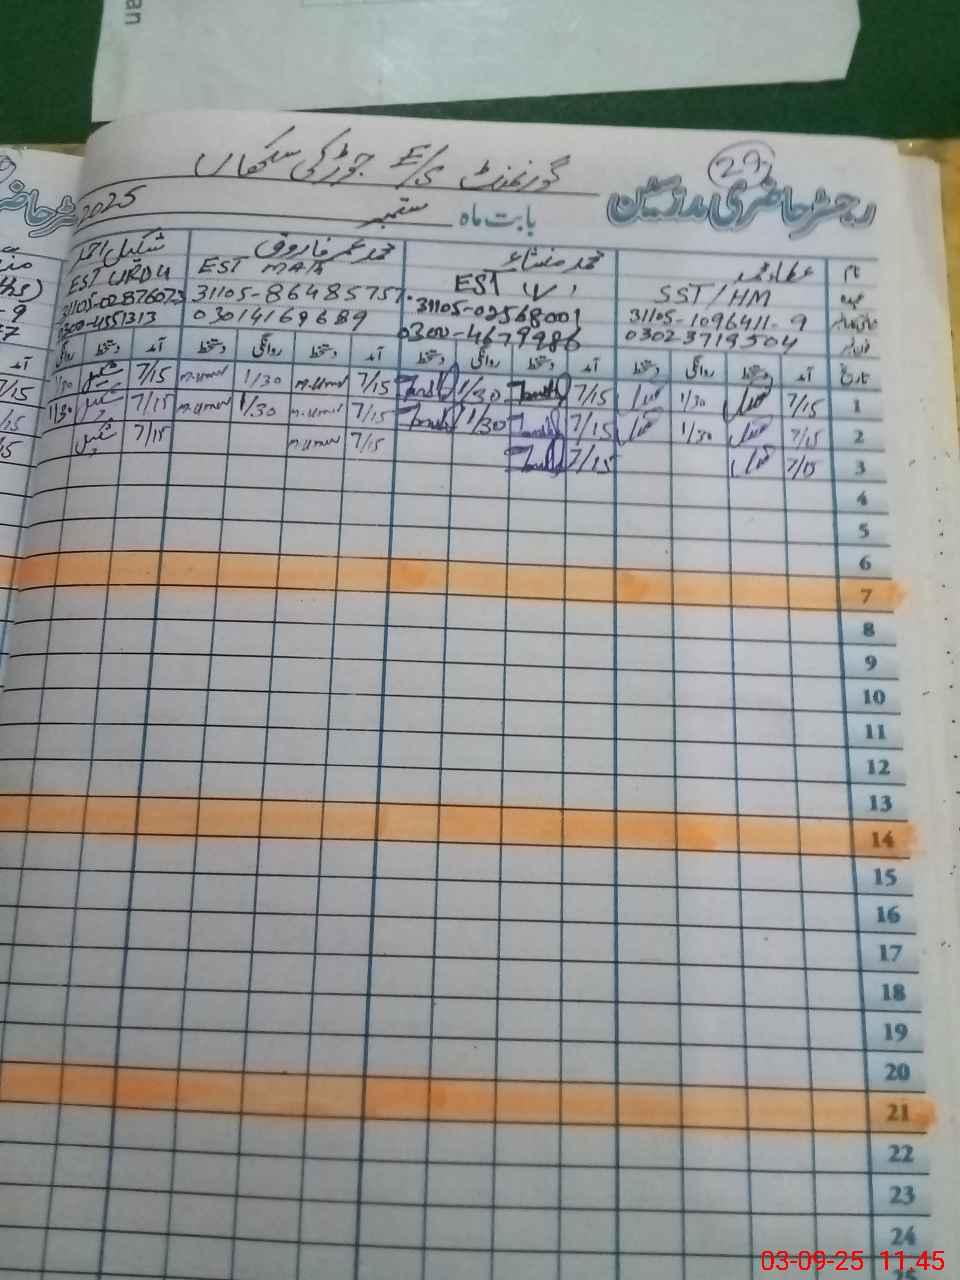 29
گورنمنٹ E/S جوڑکی سکھاں
رجسٹر حاضری مدرسین
بابت ماہ ستمبر 2025
نام عطا محمد محمد منشاء محمد عمر فاروق شکیل احمد
عہدہ SST/HM EST EST MATH EST URDU
31105-1096411-9 31105-02568001 31105-86485757. 31105-0287607
0302-3719504 0300-4679986 03014169689 0300-4551313
تاریخ آمد دستخط روانگی دستخط آمد دستخط روانگی دستخط آمد دستخط روانگی دستخط آمد دستخط روانگی
1 7/15 1/30 7/15 1/30 7/15 M.Umer 1/30 M.Umer 7/15 شکیل 1/30
2 7/15 1/30 7/15 1/30 7/15 M.Umer 1/30 M.Umer 7/15 شکیل 1/30
3 7/15 7/15 7/15 M.Umer 7/15 شکیل
4
5
6
7
8
9
10
11
12
13
14
15
16
17
18
19
20
21
22
23
24
25
03-09-25 11.45